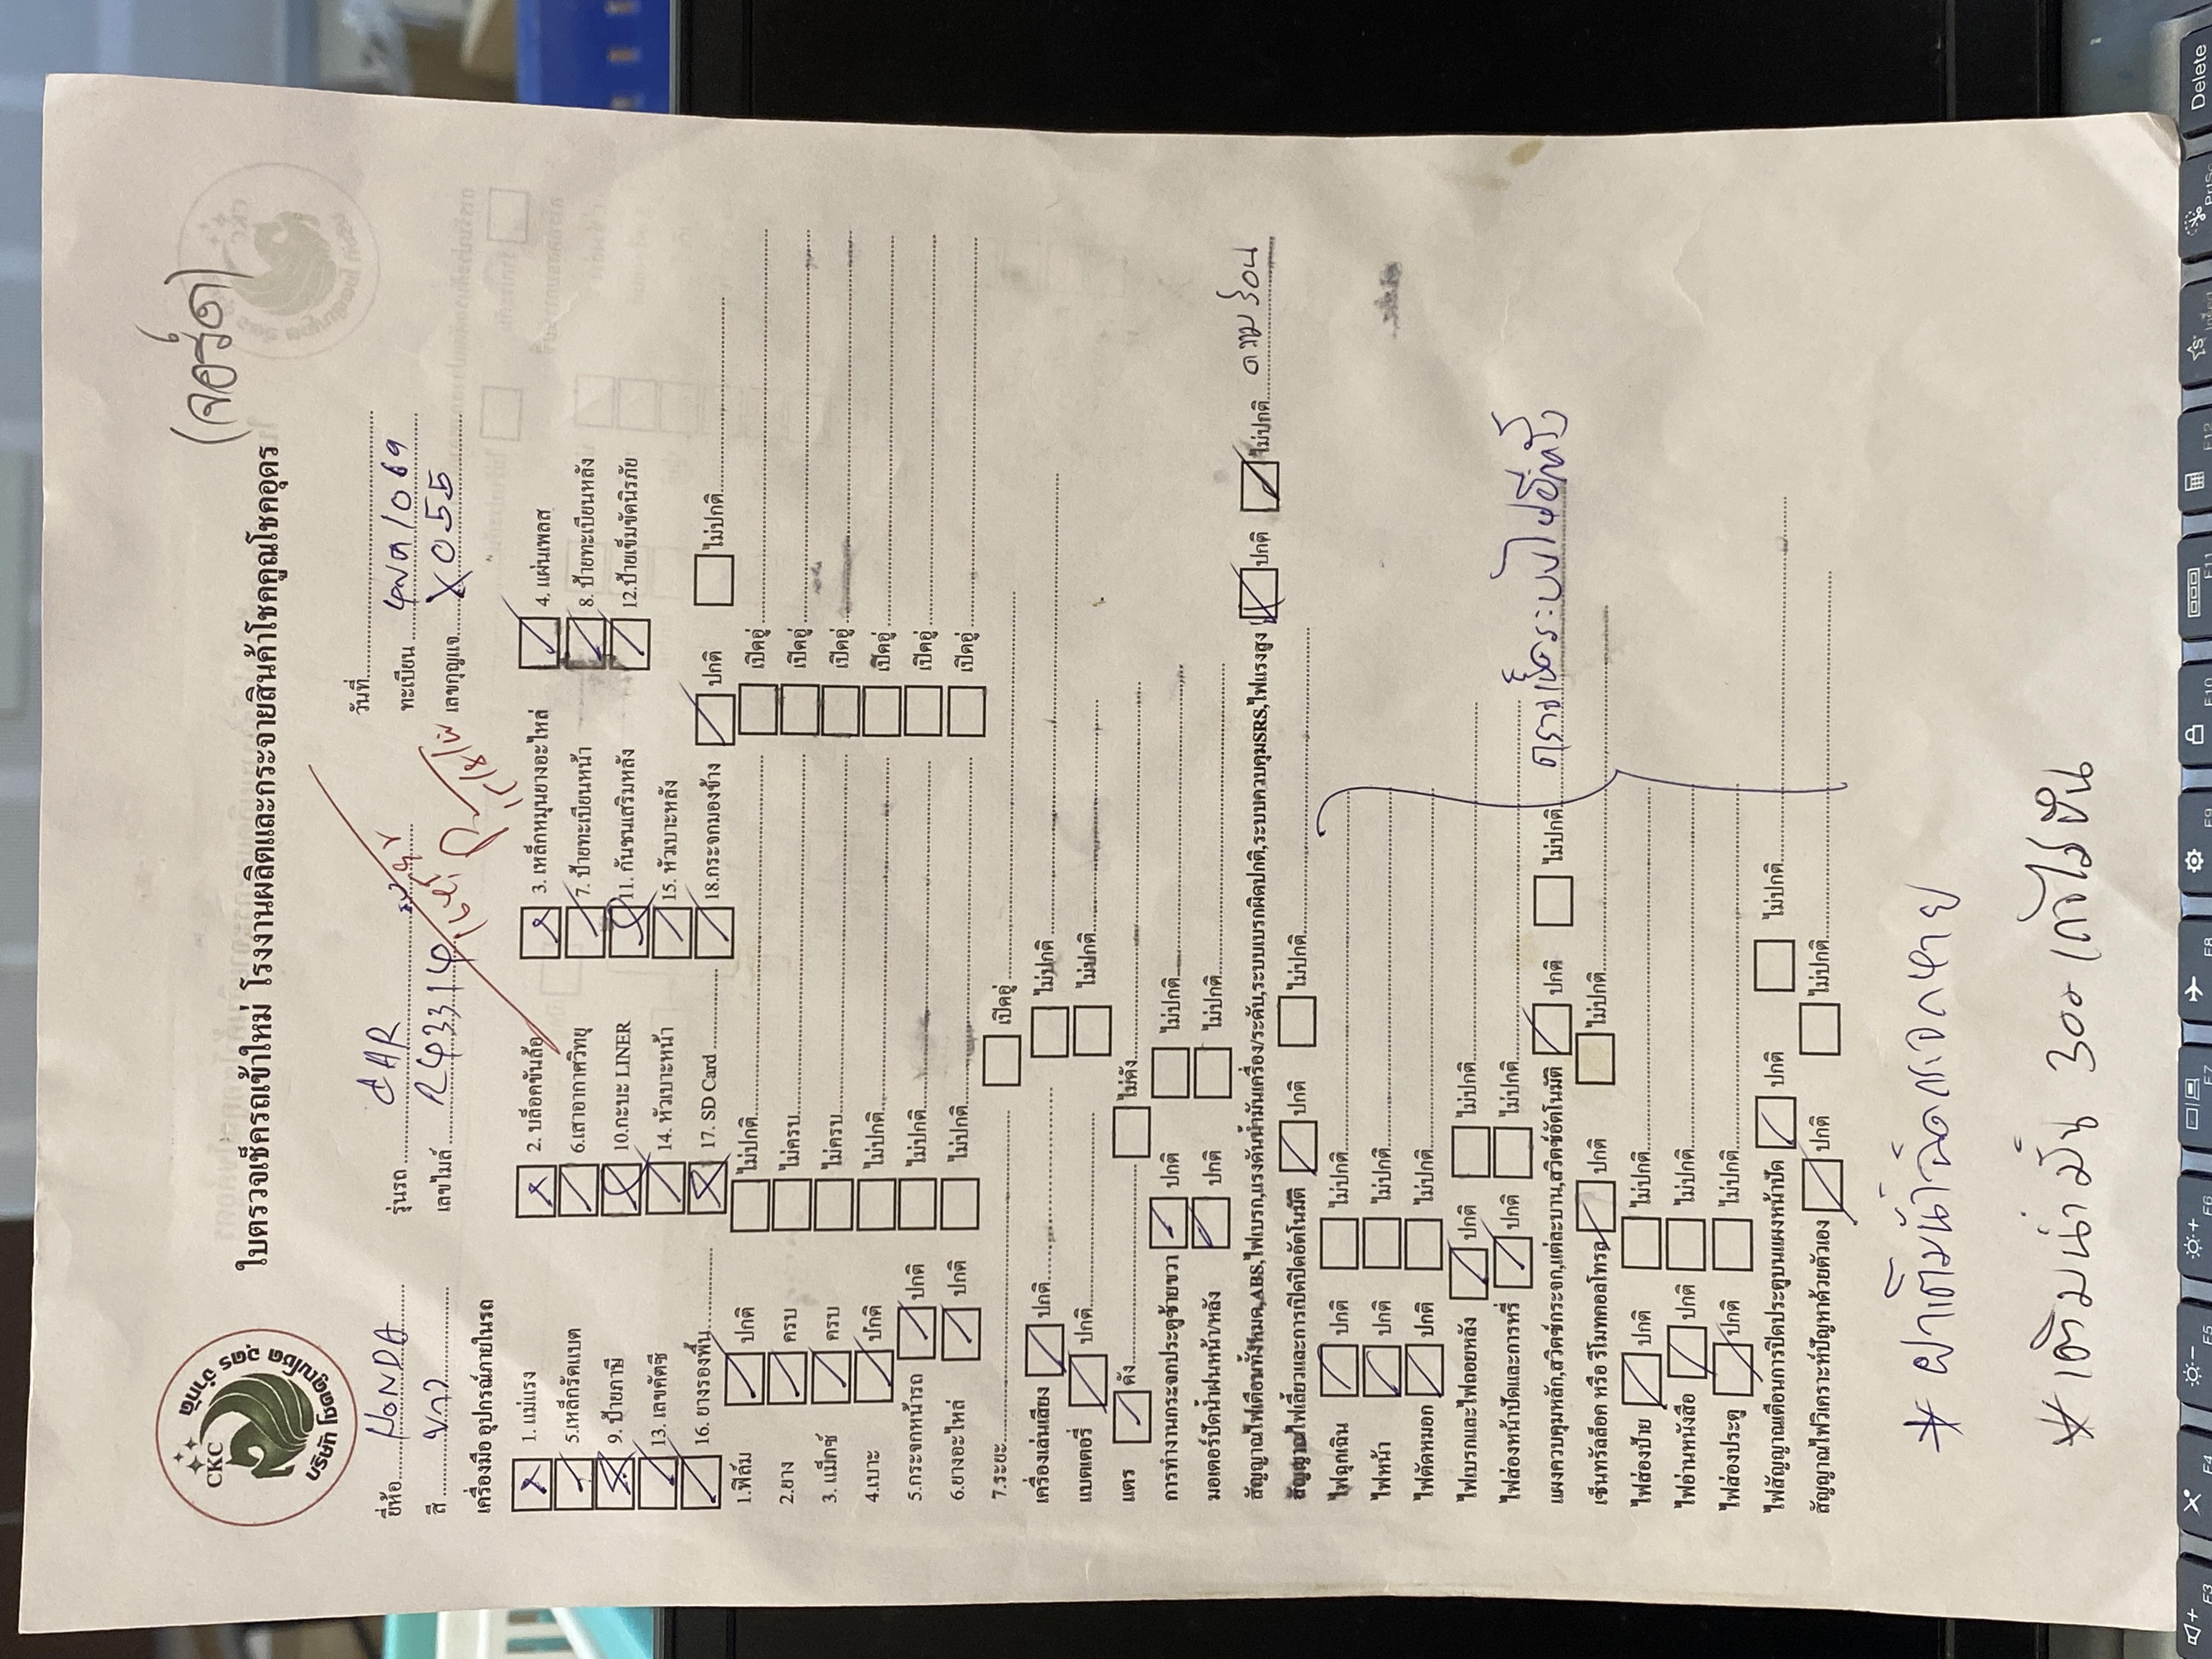 (จอร์ด)
CKC
บริษัท โชคคูณโชค อุดร จำกัด
ใบตรวจเช็ครถเข้าใหม่ โรงงานผลิตและกระจายสินค้าโชคคูณโชคอุดร
ยี่ห้อ HONDA รุ่นรถ CAR วันที่
สี ขาว เลขไมล์ ทะเบียน
เลขกุญแจ X055
เครื่องมือ อุปกรณ์ภายในรถ
1. แม่แรง 2. บล็อคขันล้อ 3. เหล็กหมุนยางอะไหล่ 4. แผ่นเพลส
5.เหล็กรัดแบต 6.เสาอากาศวิทยุ 7. ป้ายทะเบียนหน้า 8. ป้ายทะเบียนหลัง
9. ป้ายภาษี 10.กะบะ LINER 11. กันชนเสริมหลัง 12.ป้ายเข็มขัดนิรภัย
13. เลขคัตซี 14. หัวเบาะหน้า 15. หัวเบาะหลัง
16. ยางรองพื้น 17. SD Card 18.กระจกมองข้าง ปกติ ไม่ปกติ
1.ฟิล์ม ปกติ ไม่ปกติ เปิดอู่
2.ยาง ครบ ไม่ครบ เปิดอู่
3. แม็กซ์ ครบ ไม่ครบ เปิดอู่
4.เบาะ ปกติ ไม่ปกติ เปิดอู่
5.กระจกหน้ารถ ปกติ ไม่ปกติ เปิดอู่
6.ยางอะไหล่ ปกติ ไม่ปกติ เปิดอู่
7.ระยะ เปิดอู่
เครื่องเล่นเสียง ปกติ ไม่ปกติ
แบตเตอรี่ ปกติ ไม่ปกติ
แตร ดัง ไม่ดัง
การทำงานกระจกประตูซ้ายขวา ปกติ ไม่ปกติ
มอเตอร์ปัดน้ำฝนหน้า/หลัง ปกติ ไม่ปกติ
สัญญาณไฟเตือนทั้งหมด,ABS,ไฟเบรก,แรงดันน้ำมันเครื่อง/ระดับ,ระบบเบรกผิดปกติ,ระบบควบคุมSRS,ไฟแรงสูง ปกติ ไม่ปกติ ความร้อน
สัญญาณไฟเลี้ยวและการเปิดปิดอัตโนมัติ ปกติ ไม่ปกติ
ไฟฉุกเฉิน ปกติ ไม่ปกติ
ไฟหน้า ปกติ ไม่ปกติ
ไฟตัดหมอก ปกติ ไม่ปกติ
ไฟเบรกและไฟถอยหลัง ปกติ ไม่ปกติ
ไฟส่องหน้าปัดและการหรี่ ปกติ ไม่ปกติ
แผงควบคุมหลัก,สวิตช์กระจก,แต่ละบาน,สวิตช์อัตโนมัติ ปกติ ไม่ปกติ ตรวจเช็คระบบไฟอีกครั้ง
เซ็นทรัลล็อค หรือ รีโมทคอลโทรล ปกติ ไม่ปกติ
ไฟส่องป้าย ปกติ ไม่ปกติ
ไฟอ่านหนังสือ ปกติ ไม่ปกติ
ไฟส่องประตู ปกติ ไม่ปกติ
ไฟสัญญาณเตือนการปิดประตูบนแผงหน้าปัด ปกติ ไม่ปกติ
สัญญาณไฟวิเคราะห์ปัญหาด้วยตัวเอง ปกติ ไม่ปกติ
* ฝาเติมน้ำฉีดกระจกหาย
* เติมน้ำมัน 300 เกจ์ไม่ขึ้น
Delete
PrtSc
F12
F11
F10
F9
F8
F7
F6
F5
F4
F3